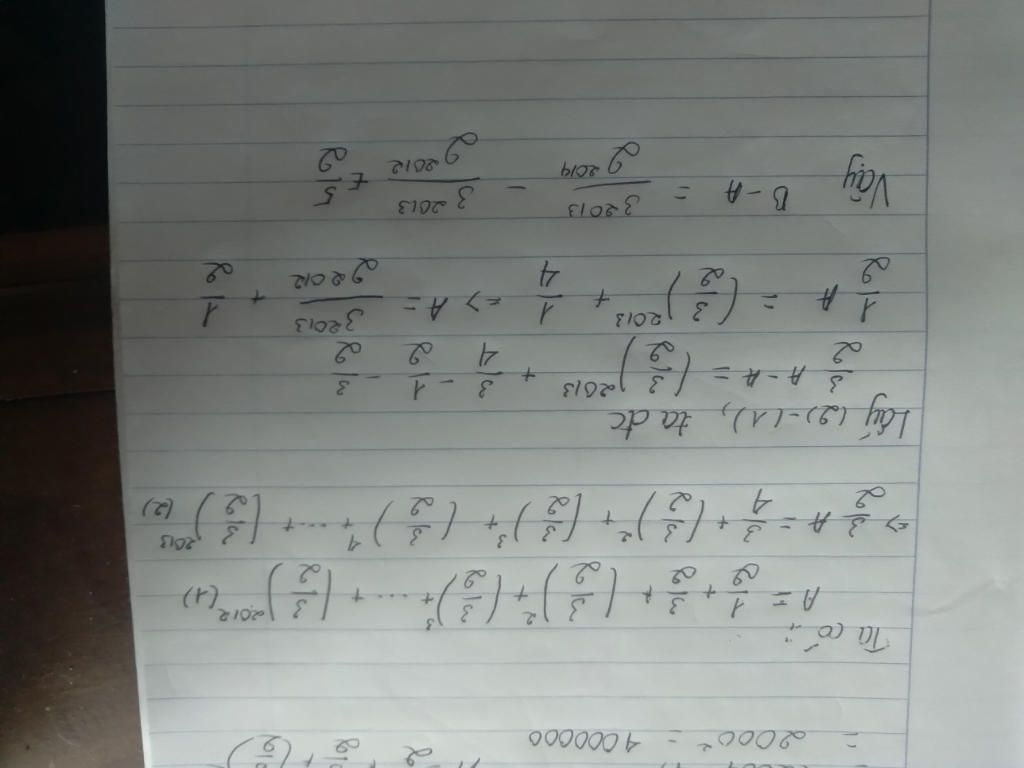 = 2000² = 4000000
Ta có :
A = 1/2 + 3/2 + (3/2)² + (3/2)³ + ... + (3/2)²⁰¹² (1)
=> 3/2 A = 3/4 + (3/2)² + (3/2)³ + (3/2)⁴ + ... + (3/2)²⁰¹³ (2)
Lấy (2) - (1), ta dc
3/2 A - A = (3/2)²⁰¹³ + 3/4 - 1/2 - 3/2
1/2 A = (3/2)²⁰¹³ + 1/4 => A = 3²⁰¹³/2²⁰¹² + 1/2
Vậy B - A = 3²⁰¹³/2²⁰¹⁴ - 3²⁰¹³/2²⁰¹² + 5/2